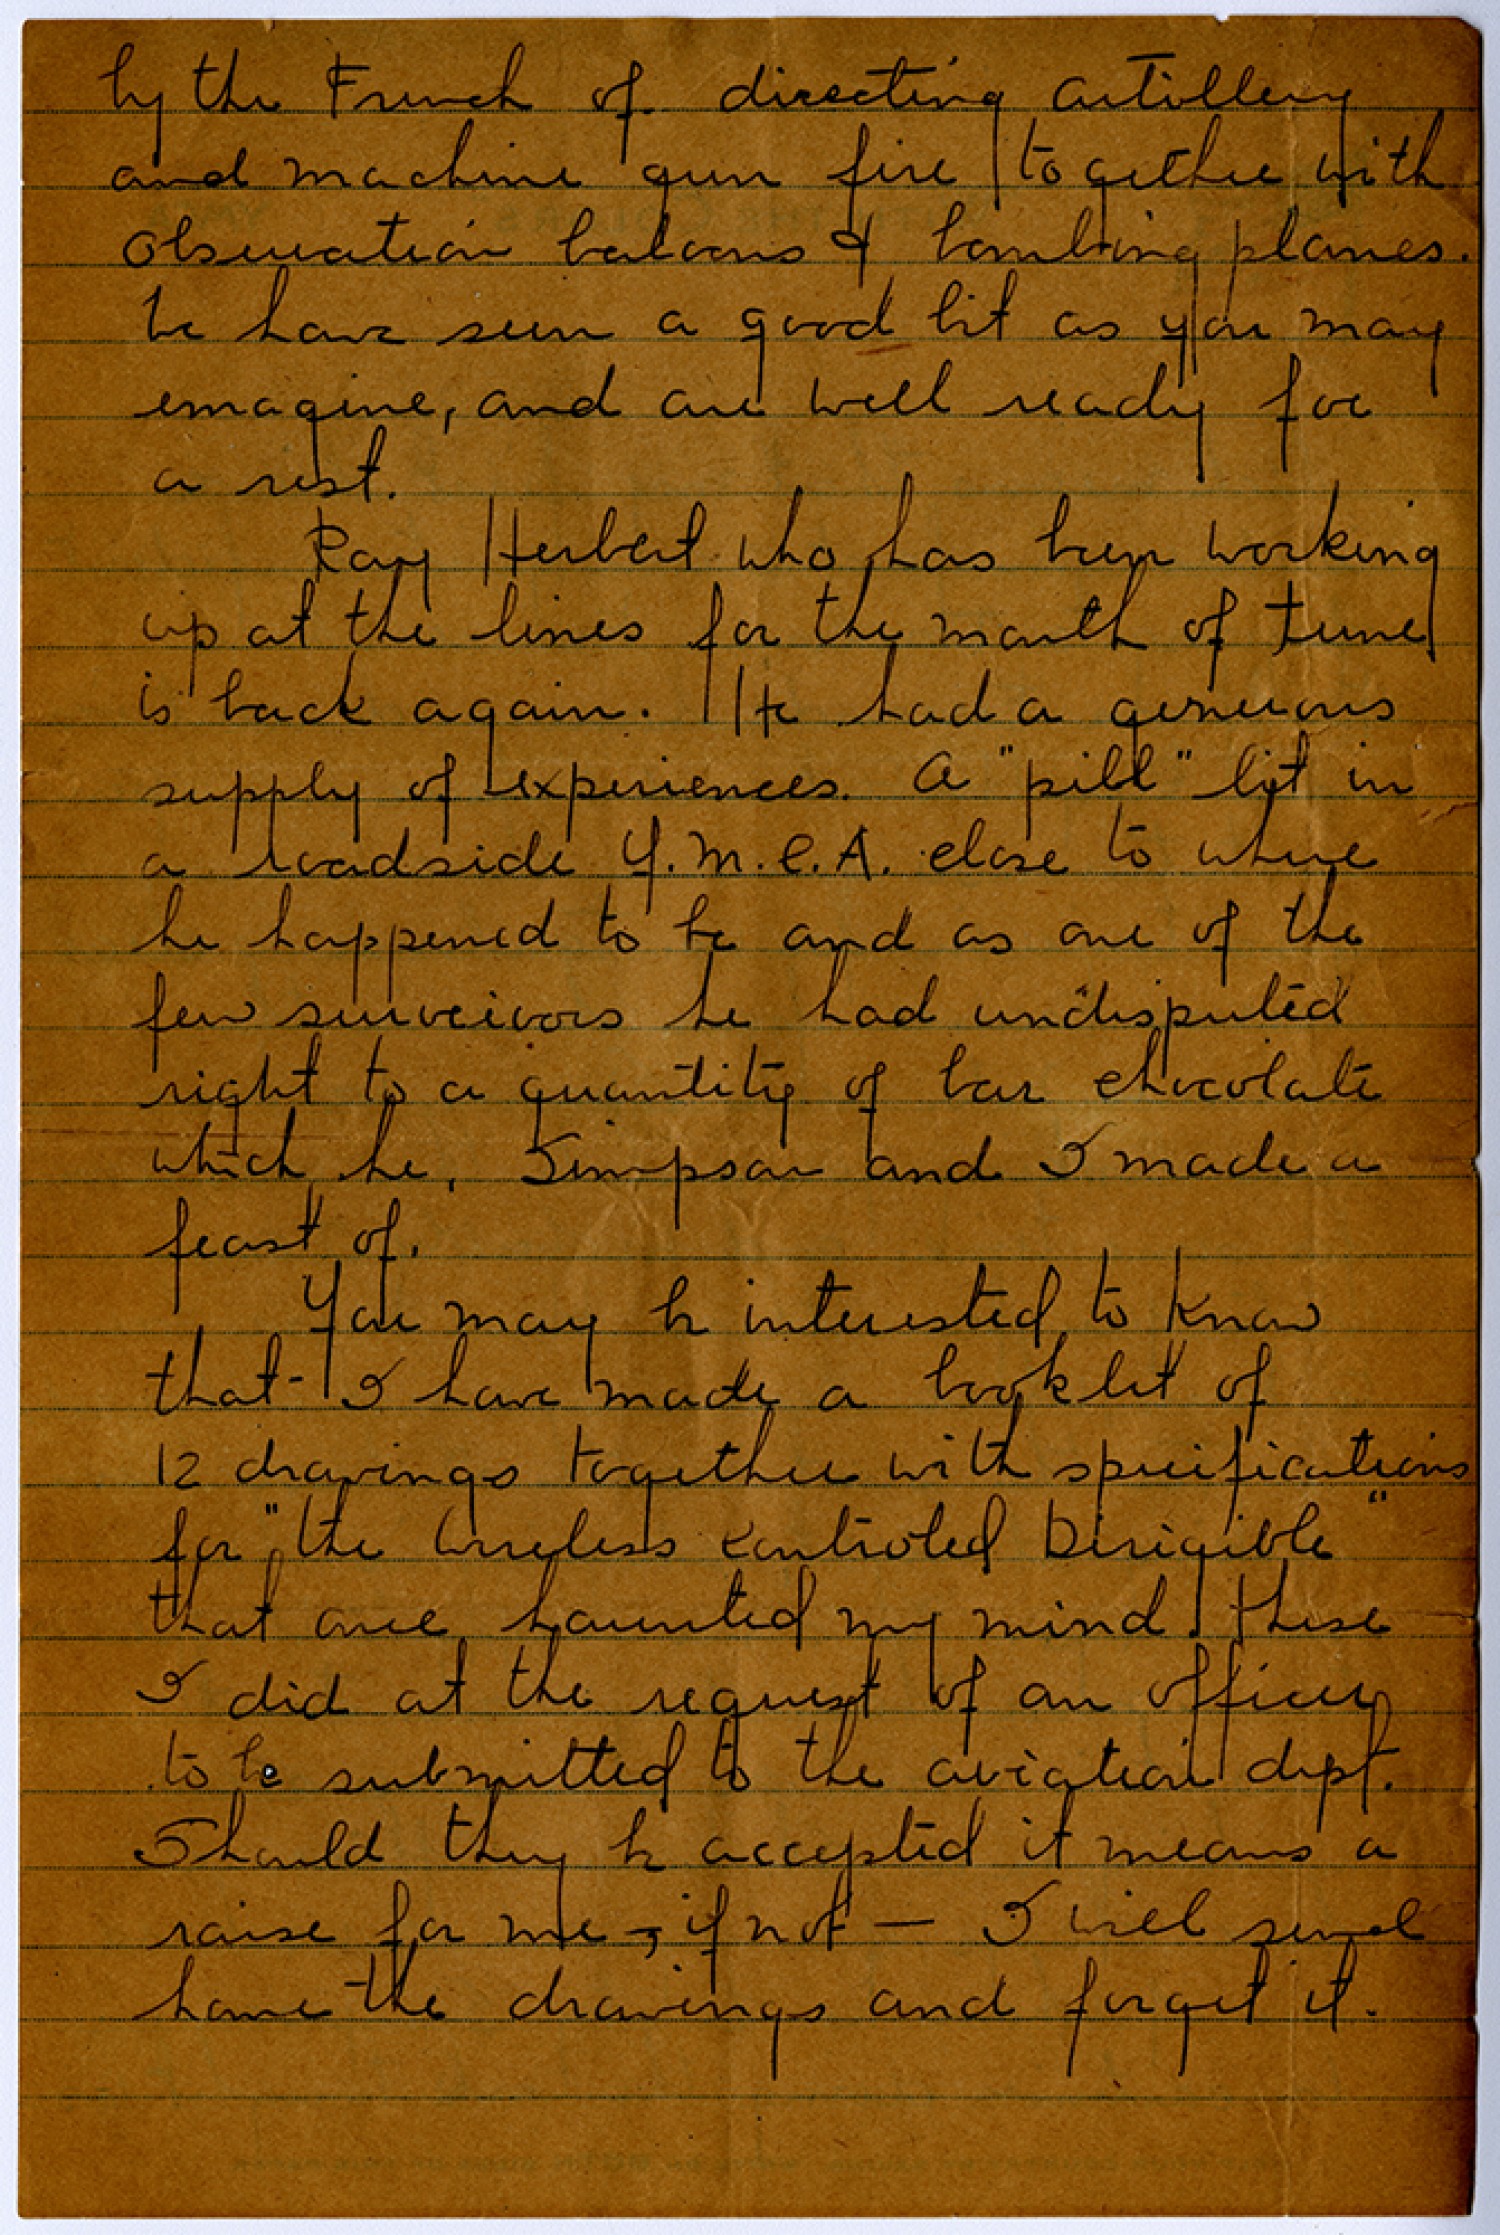 by the French of directing artillery
and machine gun fire together with
observation baloons & bombing planes.
We have seen a good bit as you may
emagine, and are well ready for
a rest.
Ray Herbert who has been working
up at the lines for the month of June
is back again. He had a generous
supply of experiences. A "pill" lit in
a roadside Y.M.C.A. close to where
he happened to be and as one of the
few surveivors he had undisputed
right to a quantity of bar chocolate
which he, Simpson and I made a
feast of.
You may be interested to know
that I have made a booklet of
12 drawings together with specifications
for "the Wireless Controled Dirigible"
that once haunted my mind. These
I did at the request of an officer
to be submitted to the aviation dept.
Should they be accepted it means a
raise for me -, if not — I will send
home the drawings and forget it.